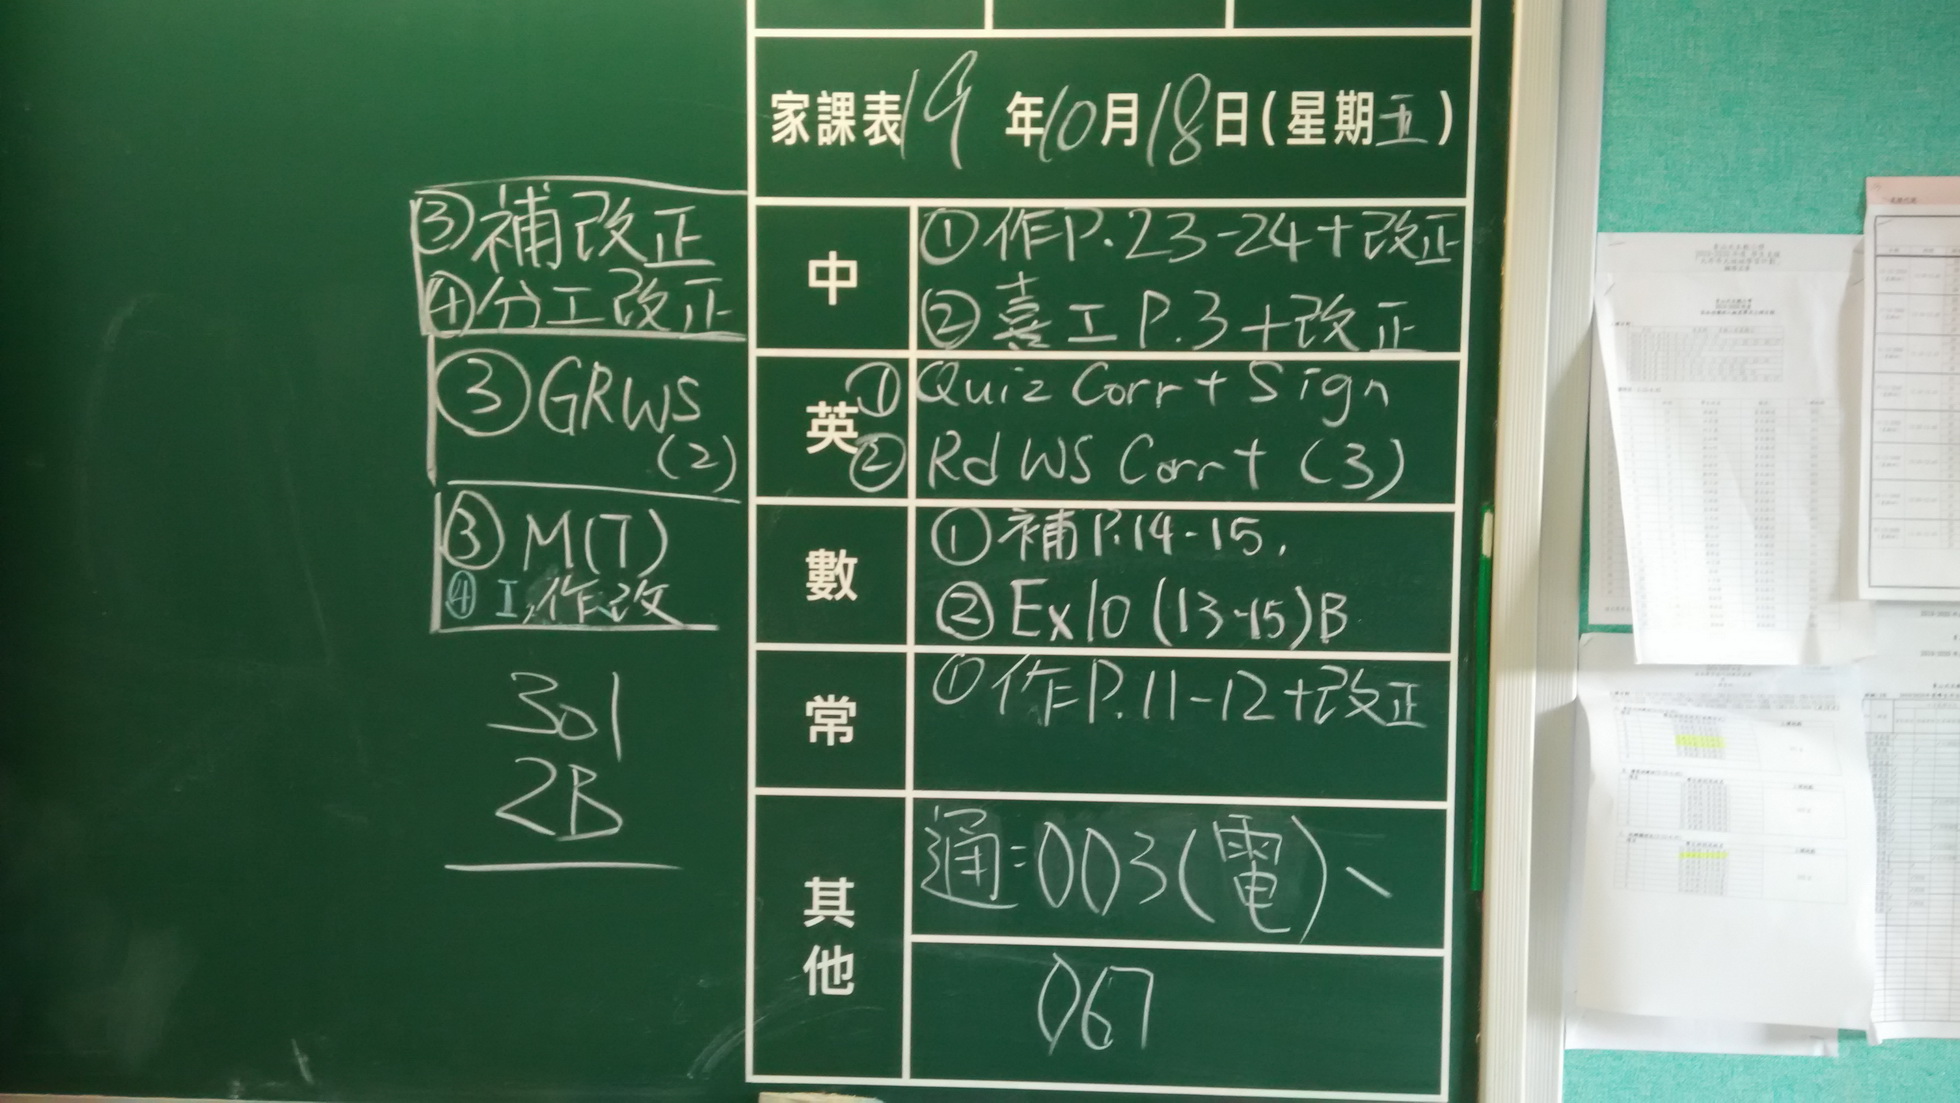 家課表19年10月18日(星期五)
中
①作P.23-24+改正
②喜工P.3+改正
③補改正
④分工改正
英
①Quiz Corr+Sign
②Rd WS Corr+(3)
③GRWS
(2)
數
①補P.14-15.
②Ex10(13-15)B
③M(T)
④工作改
常
①作P.11-12+改正
其他
通:003(電)、
067
301
2B